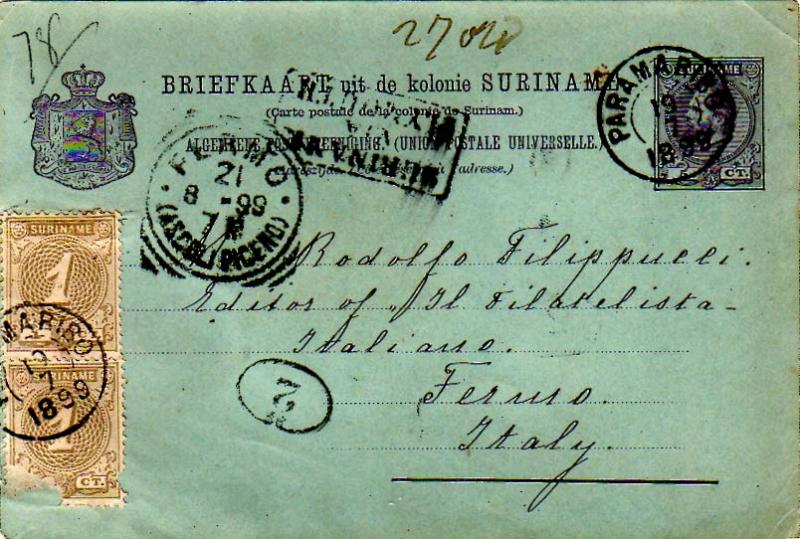 78
27
BRIEFKAART uit de kolonie SURINAME
(Carte postale de la colonie de Surinam.)
ALGEMEENE (UNION POSTALE UNIVERSELLE.)
SURINAME
CT.
PARAMARIBO
19
7
1899
FERMO
21
8 - 99
7
(ASCOLI PICENO)
SURINAME
Rodolfo Filippucci.
Editor of "Il Filatelista
Italiano.
Fermo.
Italy.
SURINAME
1
SURINAME
1
CT.
MARIBO
19
7
1899
2